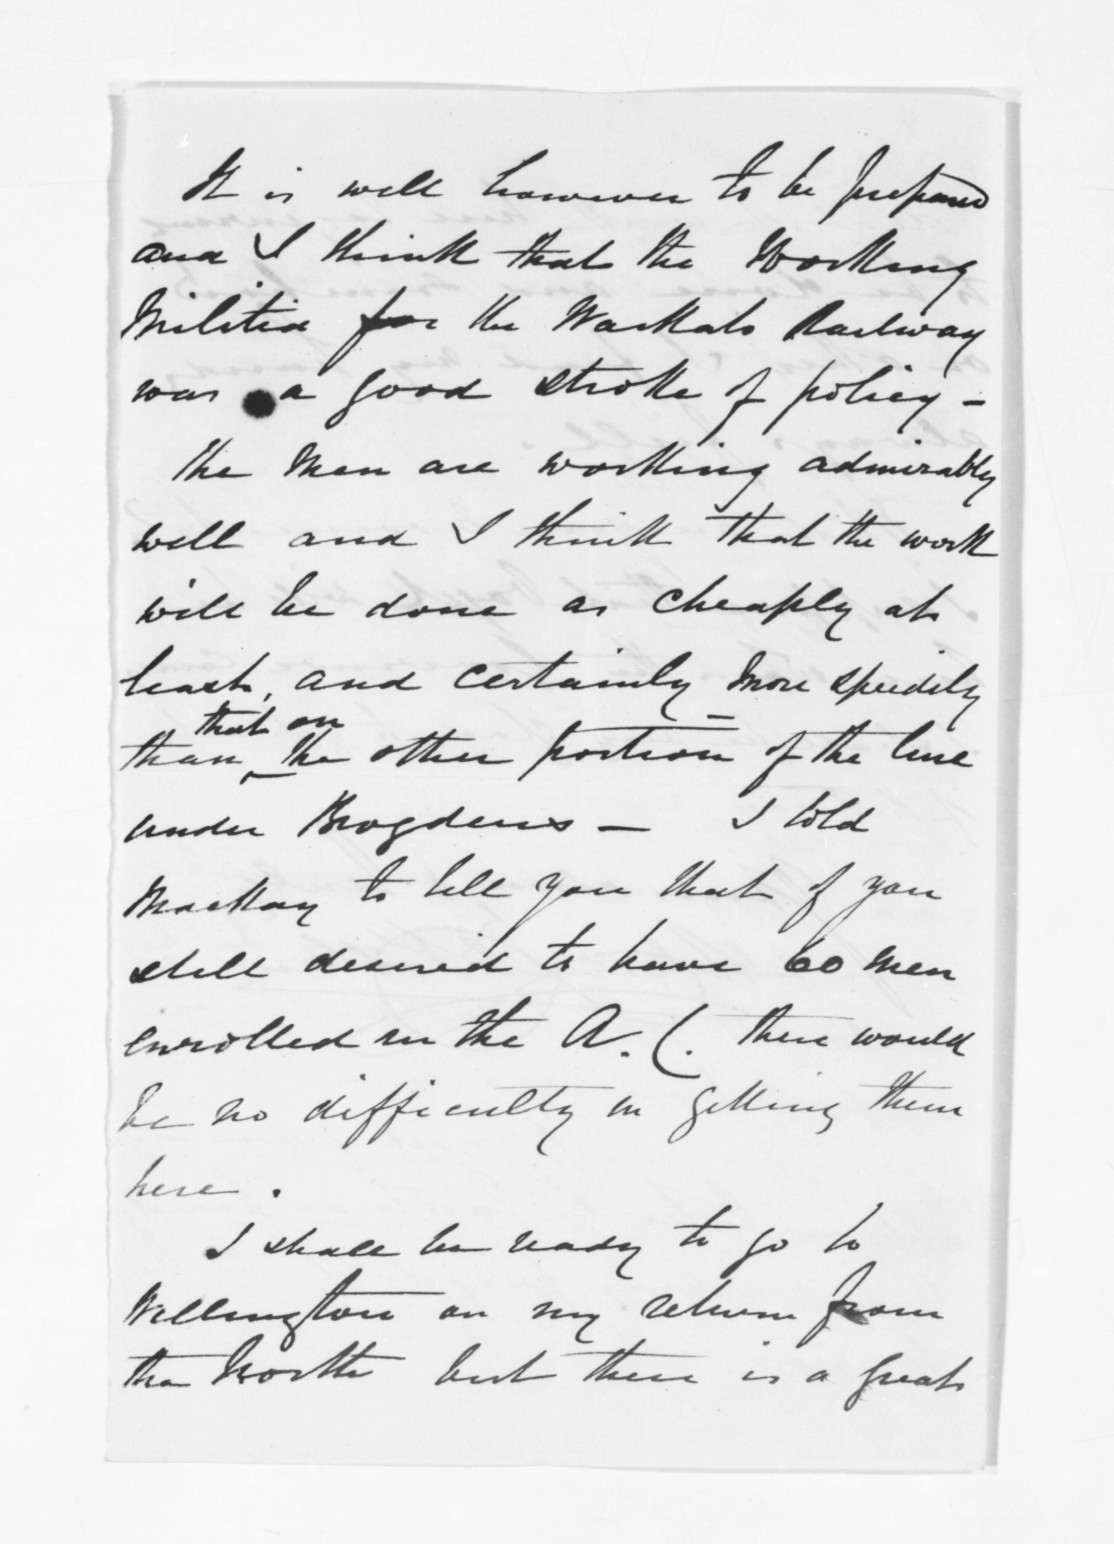 It is well however to be prepared
and I think that the Working
Militia for the Waikato Railway
was a good stroke of policy –
The men are working admirably
well and I think that the work
will be done as cheaply at
least, and certainly more speedily
than that on the other portion of the line
under Brogdens – I told
Mackay to tell you that if you
still desired to have 60 men
enrolled in the A.C. there would
be no difficulty in getting them
here.
I shall be ready to go to
Wellington on my return from
the North but there is a great